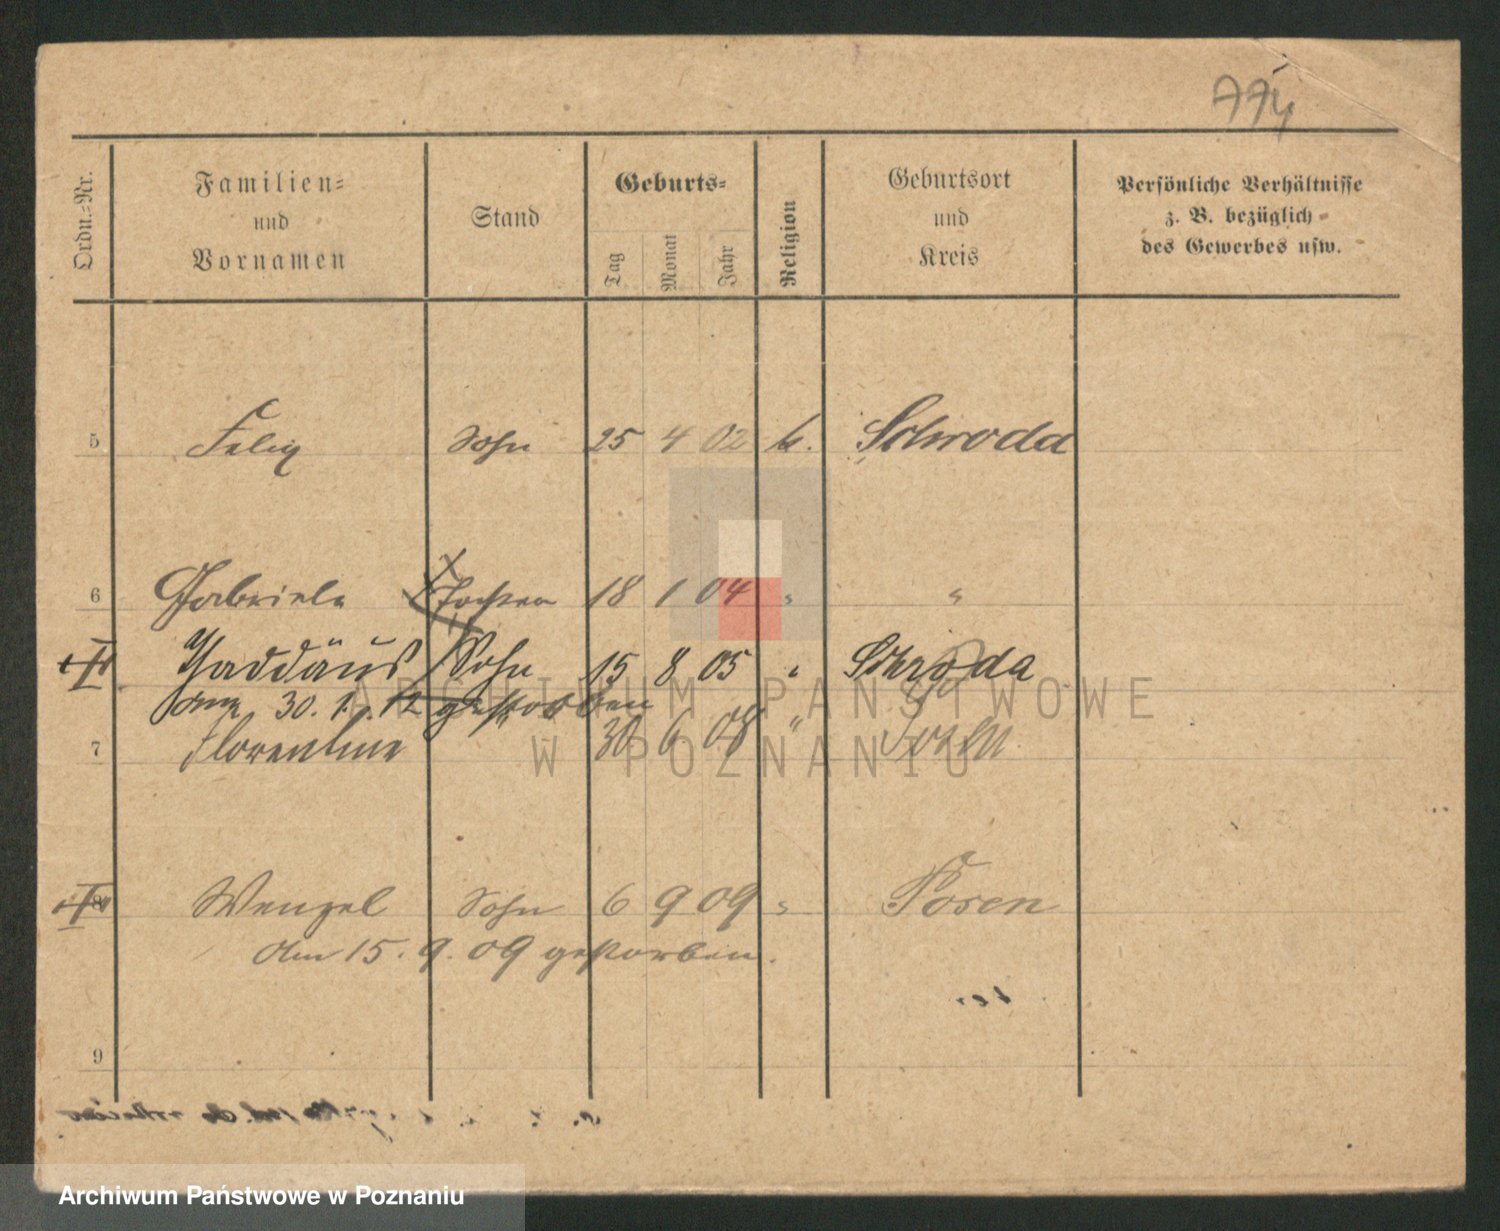 774
Ordn.-Nr.
Familien-
und
Vornamen
Stand
Geburts-
Tag
Monat
Jahr
Religion
Geburtsort
und
Kreis
Persönliche Verhältnisse
z. B. bezüglich
des Gewerbes usw.
5 Felix Sohn 25 4 02 k. Schroda
6 Gabriele Tochter 18 1 04 " "
Thaddäus Sohn 15 8 05 " Schroda
am 30. 1. 12 gestorben
7 Florentine " 30 6 08 "
8 Wenzel Sohn 6 9 09 " Posen
am 15. 9. 09 gestorben.
9
ARCHIWUM PAŃSTWOWE
W POZNANIU
Archiwum Państwowe w Poznaniu